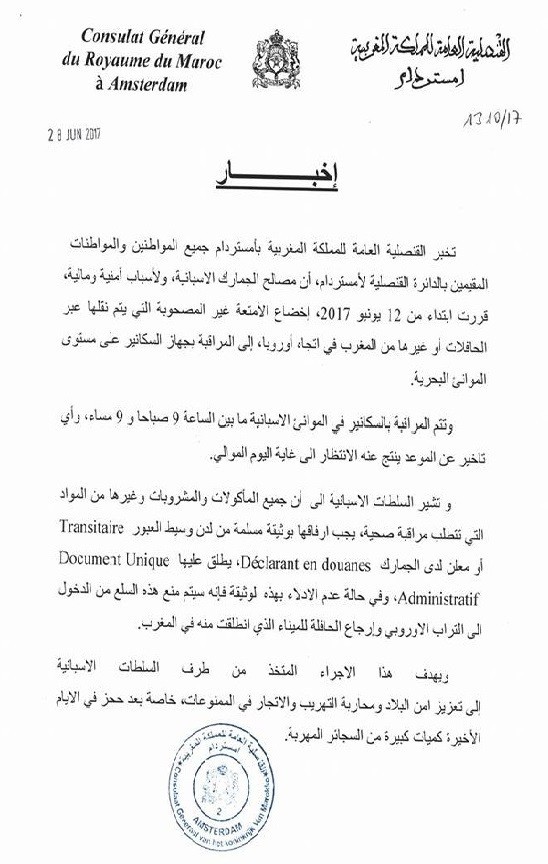 Consulat Général
du Royaume du Maroc
à Amsterdam
القنصلية العامة للمملكة المغربية
امستردام
1310/17
28 JUN 2017
إخبــــــــار
تخبر القنصلية العامة للمملكة المغربية بأمستردام جميع المواطنين والمواطنات
المقيمين بالدائرة القنصلية لأمستردام، أن مصالح الجمارك الاسبانية، ولأسباب أمنية ومالية،
قررت ابتداء من 12 يونيو 2017، إخضاع الأمتعة غير المصحوبة التي يتم نقلها عبر
الحافلات أو غيرها من المغرب في اتجاه أوروبا، إلى المراقبة بجهاز السكانير على مستوى
الموانئ البحرية.
وتتم المراقبة بالسكانير في الموانئ الاسبانية ما بين الساعة 9 صباحا و 9 مساء، وأي
تاخير عن الموعد ينتج عنه الانتظار الى غاية اليوم الموالي.
و تشير السلطات الاسبانية الى أن جميع المأكولات والمشروبات وغيرها من المواد
التي تتطلب مراقبة صحية، يجب ارفاقها بوثيقة مسلمة من لدن وسيط العبور Transitaire
أو معلن لدى الجمارك Déclarant en douanes، يطلق عليها Document Unique
Administratif، وفي حالة عدم الادلاء بهذه لوثيقة فإنه سيتم منع هذه السلع من الدخول
الى التراب الاوروبي وإرجاع الحافلة للميناء الذي انطلقت منه في المغرب.
ويهدف هذا الاجراء المتخذ من طرف السلطات الاسبانية
إلى تعزيز امن البلاد ومحاربة التهريب والاتجار في الممنوعات، خاصة بعد حجز في الايام
الأخيرة كميات كبيرة من السجائر المهربة.
القنصلية العامة للمملكة المغربية
امستردام
2
AMSTERDAM
Consulaat Generaal van het Koninkrijk van Marokko